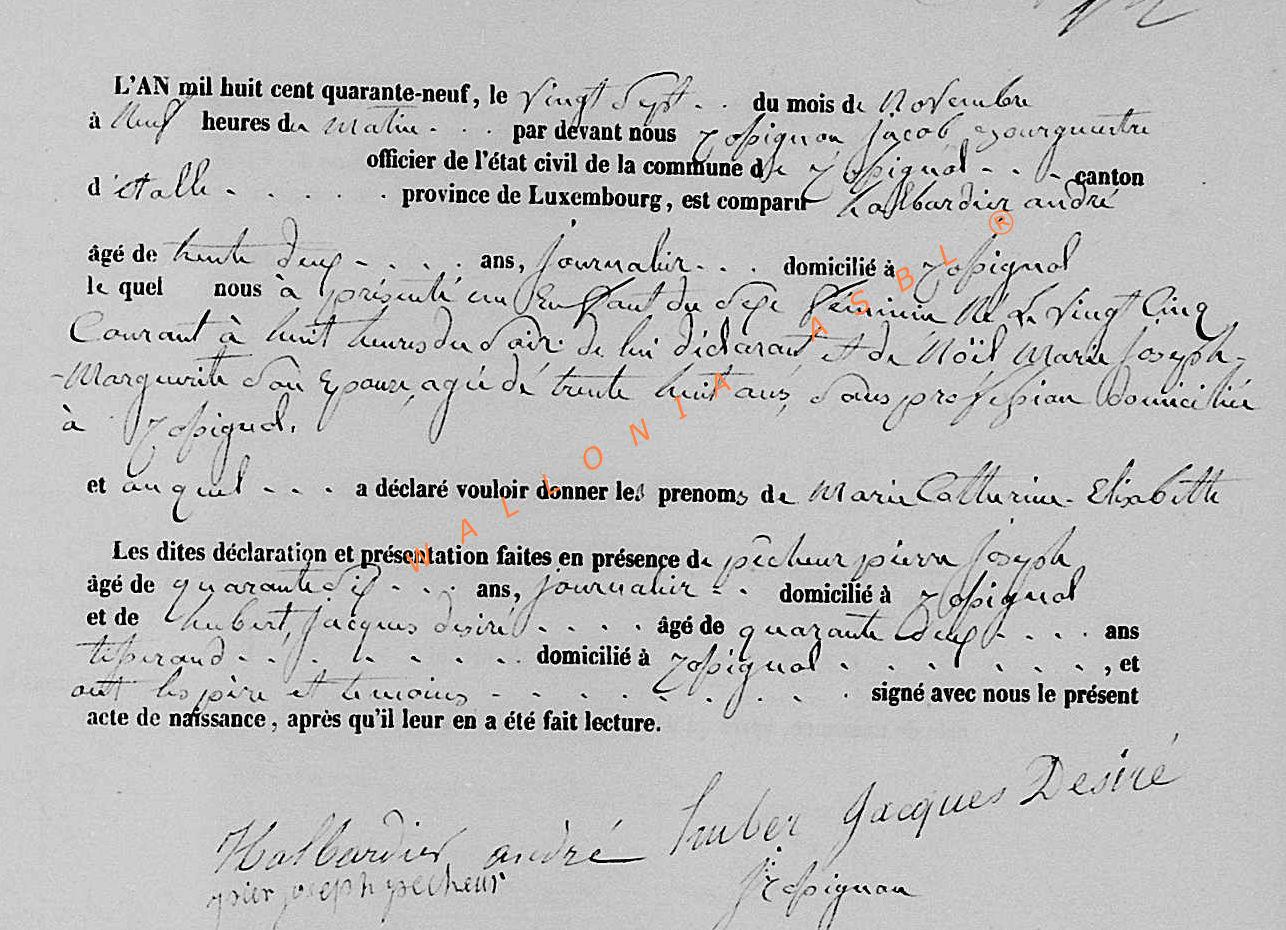 L'AN mil huit cent quarante-neuf, le vingt sept - . . du mois de Novembre
à Neuf heures du matin - . . par devant nous rossignon jacob bourguestre
officier de l'état civil de la commune de rossignol - . - canton
d'étalle - . . . . - province de Luxembourg, est comparu halbardier andré
âgé de trente deux - . . . . ans, journalier . . . domicilié à rossignol
le quel nous à présenté un Enffant du sexe féminin Né Le vingt Cinq
Courant à huit heures du soir de lui déclarant et de Nöel Marie Joseph-
-Marguerite son Epouse, agée de trente huit ans, sans profession domiciliée
à rossignol.
et auquel - - - a déclaré vouloir donner les prenoms de Marie Catherine - Elisabeth
Les dites déclaration et présentation faites en présence de pêcheur pierre Joseph
âgé de quarante six - - . . ans, journalier - . domicilié à rossignol
et de hubert, jacques desiré . . . . . âgé de quarante deux - . . . ans
tisserand - . . . . . . . domicilié à rossignol . . . . . . . , et
ont les père et temoins - . . . . . . . signé avec nous le présent
acte de naissance, après qu'il leur en a été fait lecture.
Halbardier andré huber Jacques Desiré
pier joseph pecheur Jrossignon
WALLONIA ASBL ®